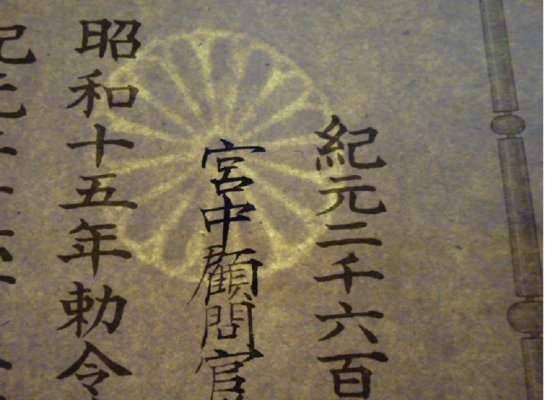 紀元二千六百
宮中顧問官
昭和十五年勅令
紀元二千六百